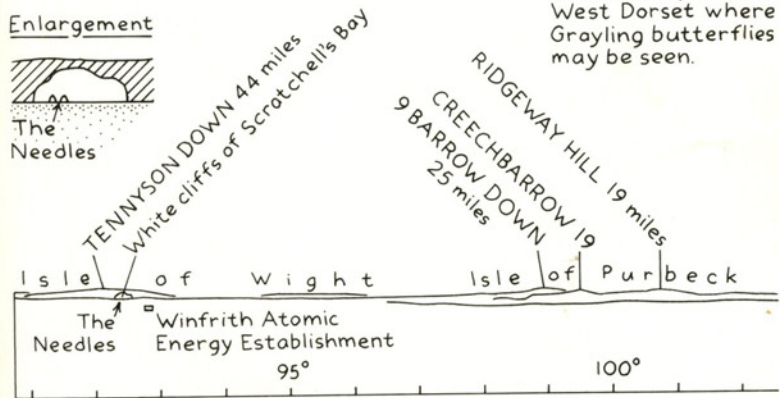 Enlargement
The
Needles
West Dorset where
Grayling butterflies
may be seen.
TENNYSON DOWN 44 miles
White cliffs of Scratchell's Bay
9 BARROW DOWN
25 miles
CREECHBARROW 19
RIDGEWAY HILL 19 miles
Isle of Wight
Isle of Purbeck
The
Needles
Winfrith Atomic
Energy Establishment
95°
100°